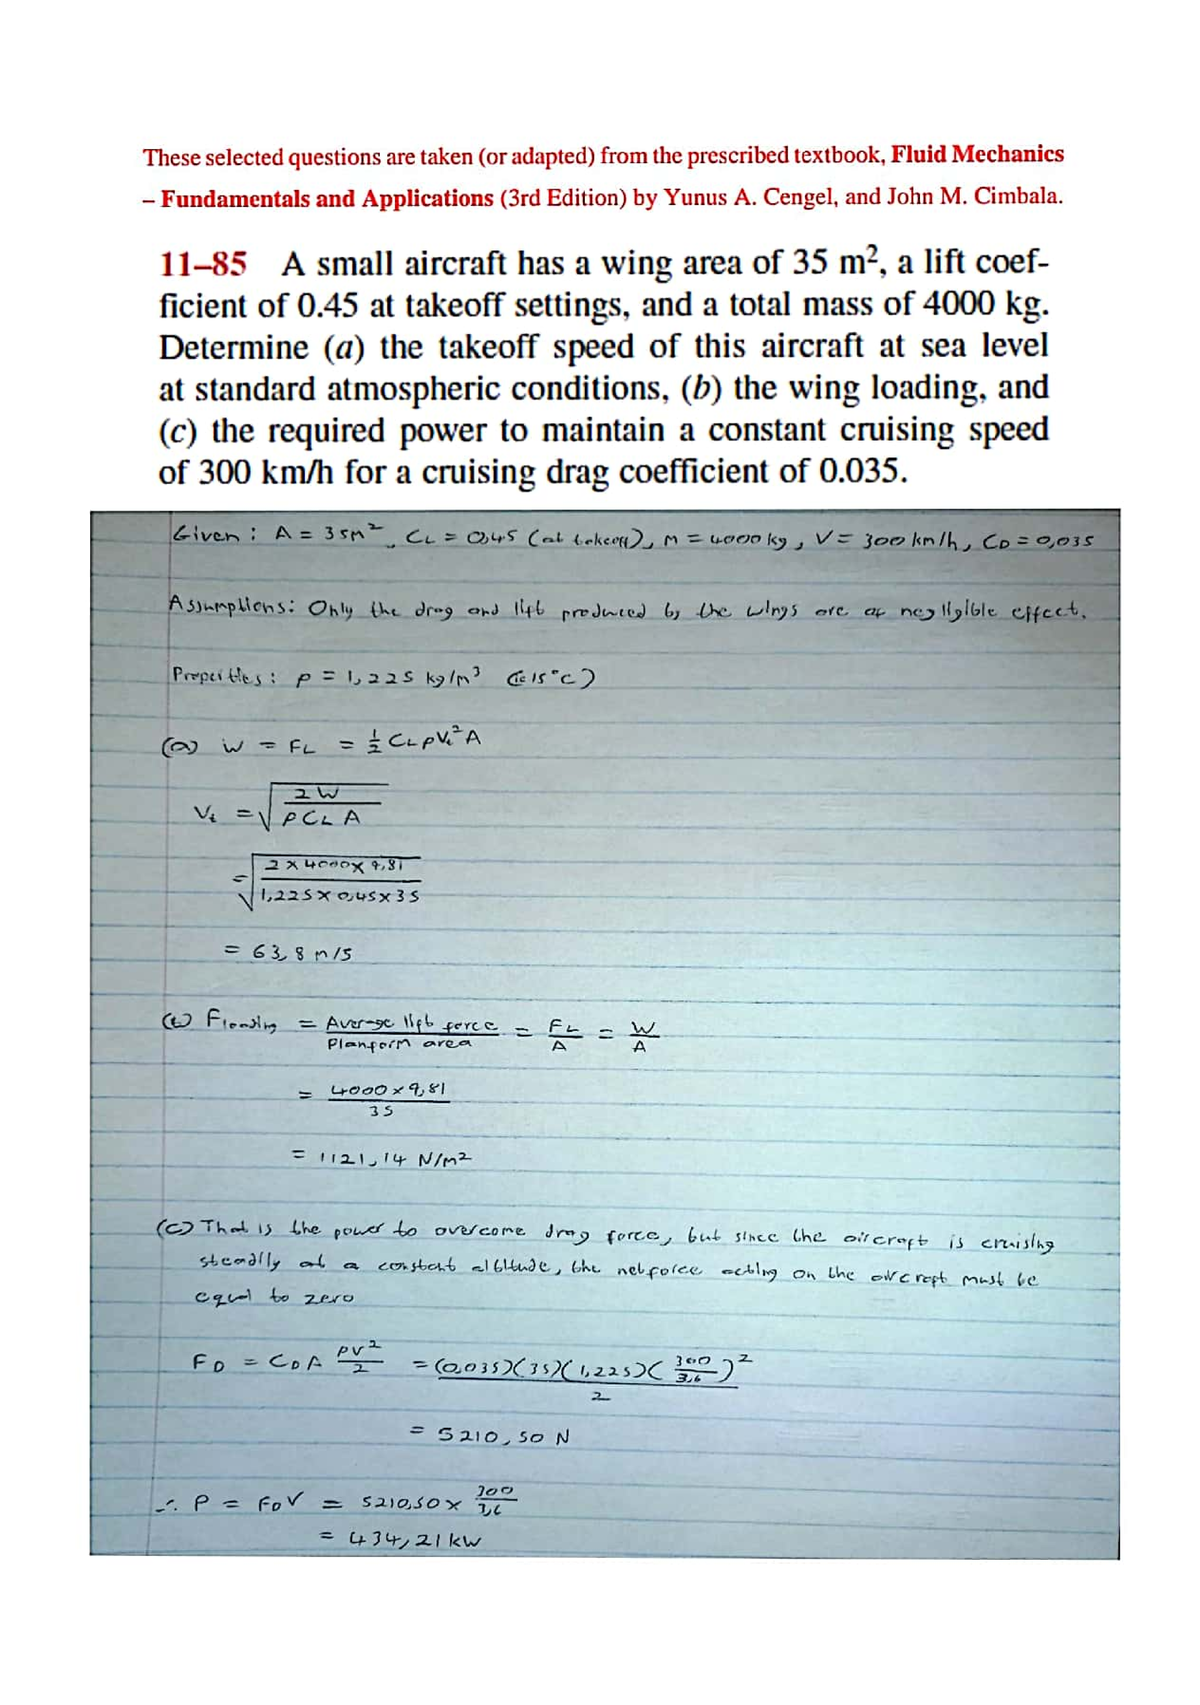 These selected questions are taken (or adapted) from the prescribed textbook, Fluid Mechanics
– Fundamentals and Applications (3rd Edition) by Yunus A. Cengel, and John M. Cimbala.
11–85 A small aircraft has a wing area of 35 m², a lift coef-
ficient of 0.45 at takeoff settings, and a total mass of 4000 kg.
Determine (a) the takeoff speed of this aircraft at sea level
at standard atmospheric conditions, (b) the wing loading, and
(c) the required power to maintain a constant cruising speed
of 300 km/h for a cruising drag coefficient of 0.035.
Given : A = 35m², CL = 0,45 (at takeoff), M = 4000 kg, V = 300 km/h, CD = 0,035
Assumptions: Only the drag and lift produced by the wings are of negligible effect.
Properties: ρ = 1,225 kg/m³ (@ 15°C)
(a) W = FL = ½ CL ρ Vt² A
Vt = √(2W / ρ CL A)
= √(2 × 4000 × 9,81 / 1,225 × 0,45 × 35)
= 63,8 m/s
(b) Floading = Average lift force / Planform area = FL / A = W / A
= 4000 × 9,81 / 35
= 1121,14 N/m²
(c) That is the power to overcome drag force, but since the aircraft is cruising
steadily at a constant altitude, the net force acting on the aircraft must be
equal to zero
FD = CD A ρV² / 2 = (0,035)(35)(1,225)(300 / 3,6)² / 2
= 5210,50 N
∴ P = FDV = 5210,50 × 300 / 3,6
= 434,21 kW